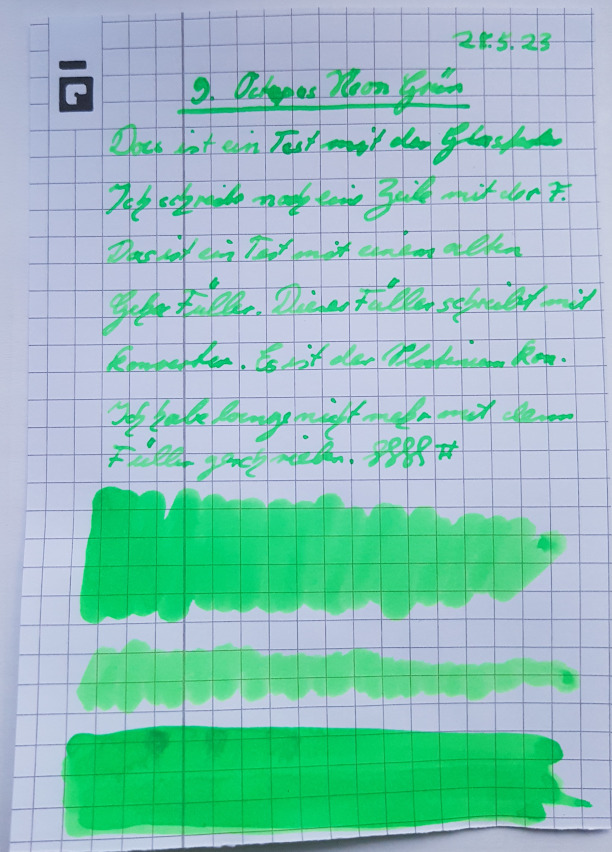 28.5.23
9. Octopus Neon Grün
Das ist ein Test mit der Glasfeder
Ich schreibe noch eine Zeile mit der F.
Das ist ein Test mit einem alten
Geha Füller. Dieser Füller schreibt mit
Konverter. Es ist der Platinium Kon.
Ich habe lange nicht mehr mit dem
Füller geschrieben. §§§§ #